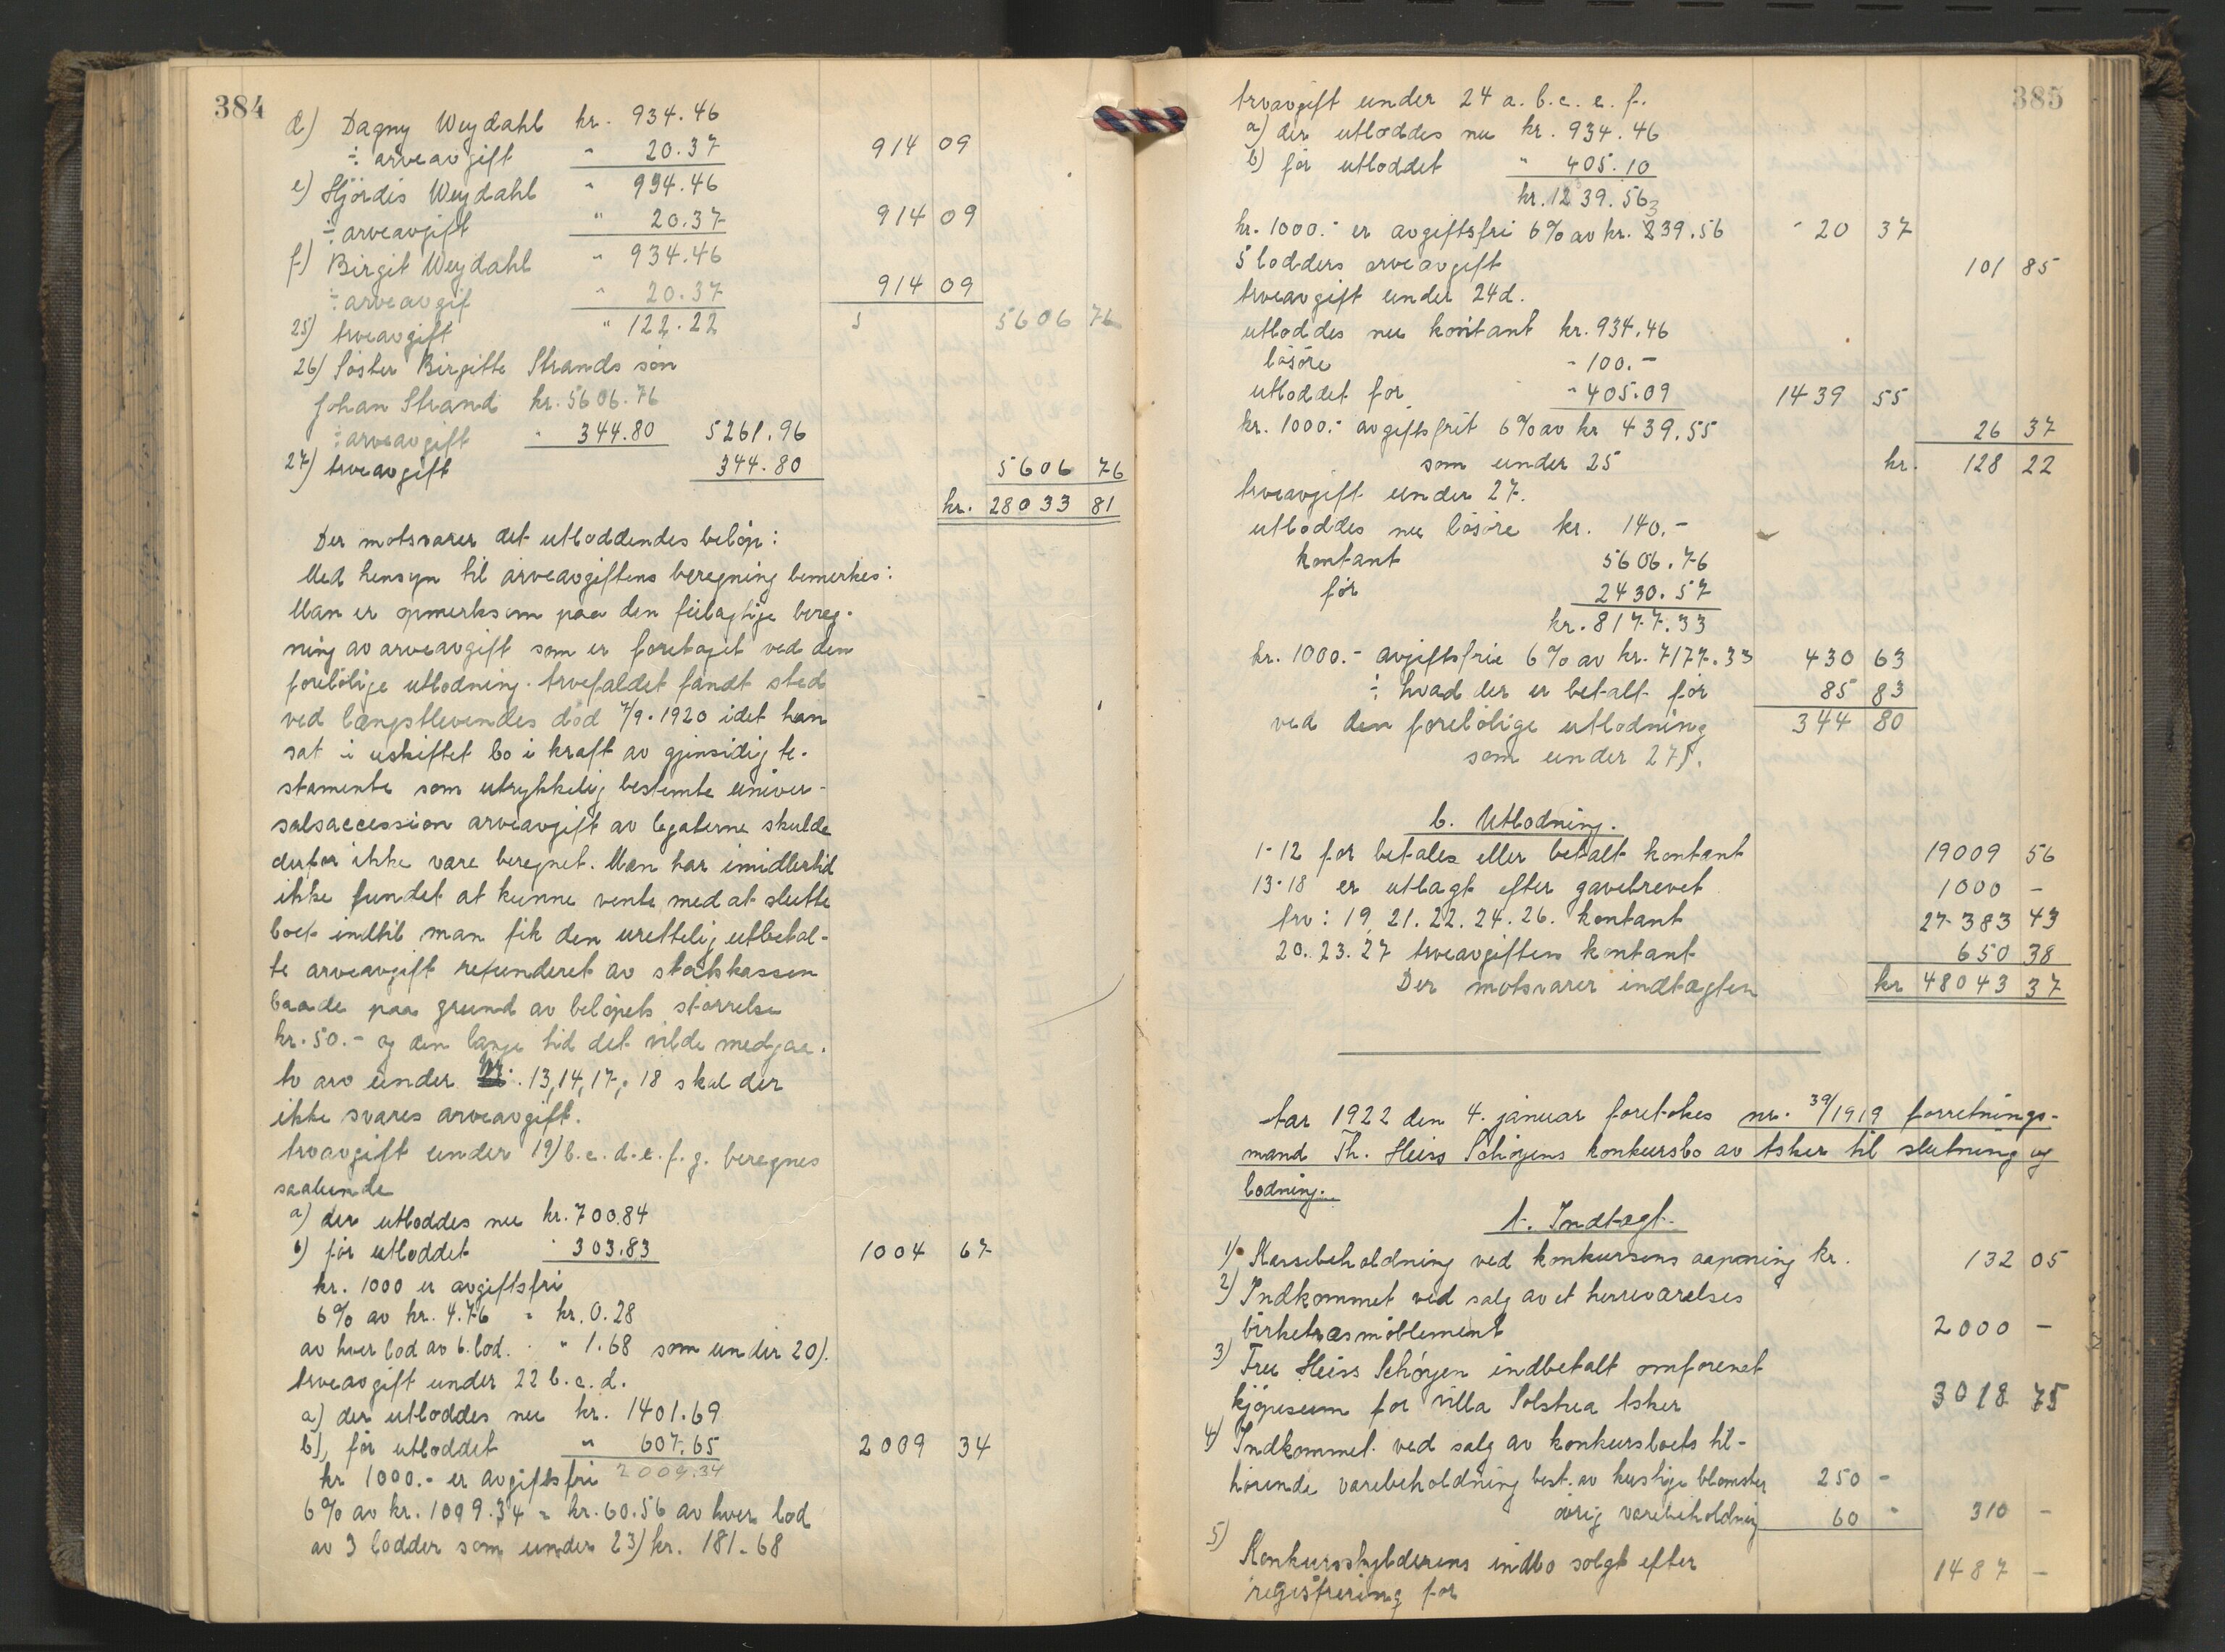 384
d) Dagny Weydahl kr. 934.46
÷ arveavgift " 20.37 914 09
e) Hjördis Weydahl " 934.46
÷ arveavgift " 20.37 914 09
f) Birgit Weydahl " 934.46
÷ arveavgif " 20.37 914 09
25) Arveavgift " 122.22 5 5606 76
26) Söster Birgitte Strands sön
Johan Strand kr. 5606.76
÷ arveavgift " 344.80 5261.96
27) Arveavgift 344.80 5606 76
kr. 28033 81
Der motsvarer det utloddendes belöp:
Med hensyn til arveavgiftens beregning bemerkes:
Man er opmerksom paa den feilagtige bereg-
ning av arveavgift som er foretaget ved den
forelöbige utlodning. Arvefaldet fandt sted
ved længstlevendes död 7/9. 1920 idet han
sat i uskiftet bo i kraft av gjensidig te-
stamente som utrykkelig bestemte univer-
salsaccession arveavgift av legaterne skulde
derfor ikke være beregnet. Man har imidlertid
ikke fundet at kunne vente med at slutte
boet indtil man fik den urettelig utbetal-
te arveavgift refunderet av statskassen
baade paa grund av belöpets störrelse
kr. 50.- og den lange tid det vilde medgaa.
Av arv under 13, 14, 17, 18 skal der
ikke svares arveavgift.
Arvavgift under 19) b. c. d. e. f. g. beregnes
saalunde
a) der utloddes nu kr. 700.84
b) för utloddet " 303.83 1004 67
kr. 1000 er avgiftsfri
6% av kr. 4.76 = kr. 0.28
av hver lod av 6 lod. " 1.68 som under 20).
Arveavgift under 22 b. c. d.
a) der utloddes nu kr. 1401.69
b) för utloddet " 607.65 2009 34
kr 1000.- er avgiftsfri 2009.34
6% av kr. 1009.34 = kr. 60.56 av hver lod
av 3 lodder som under 23) kr. 181.68
385
Arvavgift under 24 a. b. c. e. f.
a) der utloddes nu kr. 934.46
b) för utloddet " 405.10
kr. 1239.56
kr. 1000.- er avgiftsfri 6% av kr. 339.56 " 20 37
5 lodders arveavgift 101 85
Arveavgift under 24d.
utloddes nu kontant kr. 934.46
lösöre " 100.-
utloddet för " 405.09 1439 55
kr. 1000.- avgiftsfrit 6% av kr 439.55 26 37
som under 25 kr. 128 22
Arveavgift under 27.
utloddes nu lösöre kr. 140.-
kontant 5606.76
för 2430.57
kr. 8177.33
kr. 1000.- avgiftsfrie 6% av kr. 7177.33 430 63
÷ hvad der er betalt för 85 83
ved den forelöbige utlodning 344 80
som under 27).
b. Utlodning.
1-12 för betales eller betalt kontant 19009 56
13-18 er utlagt efter gavebrevet 1000 -
Arv: 19. 21. 22. 24. 26. kontant 27383 43
20. 23. 27 Arveavgiften kontant 650 38
Der motsvarer indtægten kr 48043 37
Aar 1922 den 4. januar foretokes nr. 39/1919 forretnings-
mand Th. Heiss Schöyens konkursbo av Asker til slutning og
lodning.
A. Indtægt
1) Kassebeholdning ved konkursens aapning kr. 132 05
2) Indkommet ved salg av et herreværelses
birketræsmöblement 2000 -
3) Fru Heiss Schöyen indbetalt omforenet
kjöpesum for villa Solstua Asker 3018 75
4) Indkommet ved salg av konkursboets til-
hörende varebeholdning best. av kustige blomster 250 -
övrig varebeholdning 60 - 310 -
5) Konkursskylderens indbo solgt efter
registrering for 1487 -